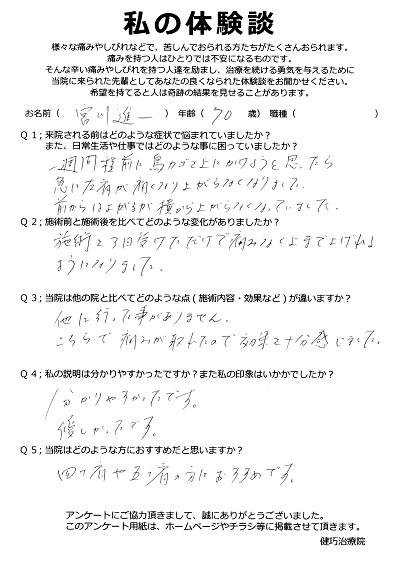 私の体験談
様々な痛みやしびれなどで、苦しんでおられる方たちがたくさんおられます。
痛みを持つ人はひとりでは不安になるものです。
そんな辛い痛みやしびれを持つ人達を励まし、治療を続ける勇気を与えるために
当院に来られた先輩としてあなたの良くなられた体験談をお聞かせください。
希望を持てると人は奇跡の結果を見せることがあります。
お名前（ 宮川進一 ） 年齢（ 70 歳）職種（ ）
Ｑ１；来院される前はどのような症状で悩まれていましたか？
また、日常生活や仕事ではどのような事に困っていましたか？
一週間程前に鳥カゴを上にかけようと思ったら
急に左肩が痛くなり上がらなくなりました。
前からは上がるが横から上がらなくなっていました。
Ｑ２；施術前と施術後を比べてどのような変化がありましたか？
施術を3回受けただけで痛みなく上まで上げれる
ようになりました。
Ｑ３；当院は他の院と比べてどのような点(施術内容・効果など)が違いますか？
他に行った事がありません。
こちらで痛みが取れたので効果を十分感じました。
Ｑ４；私の説明は分かりやすかったですか？また私の印象はいかかでしたか？
分かりやすかったです。
優しかったです。
Ｑ５；当院はどのような方におすすめだと思いますか？
四十肩や五十肩の方におすすめです。
アンケートにご協力頂きまして、誠にありがとうございました。
このアンケート用紙は、ホームページやチラシ等に掲載させて頂きます。
健巧治療院